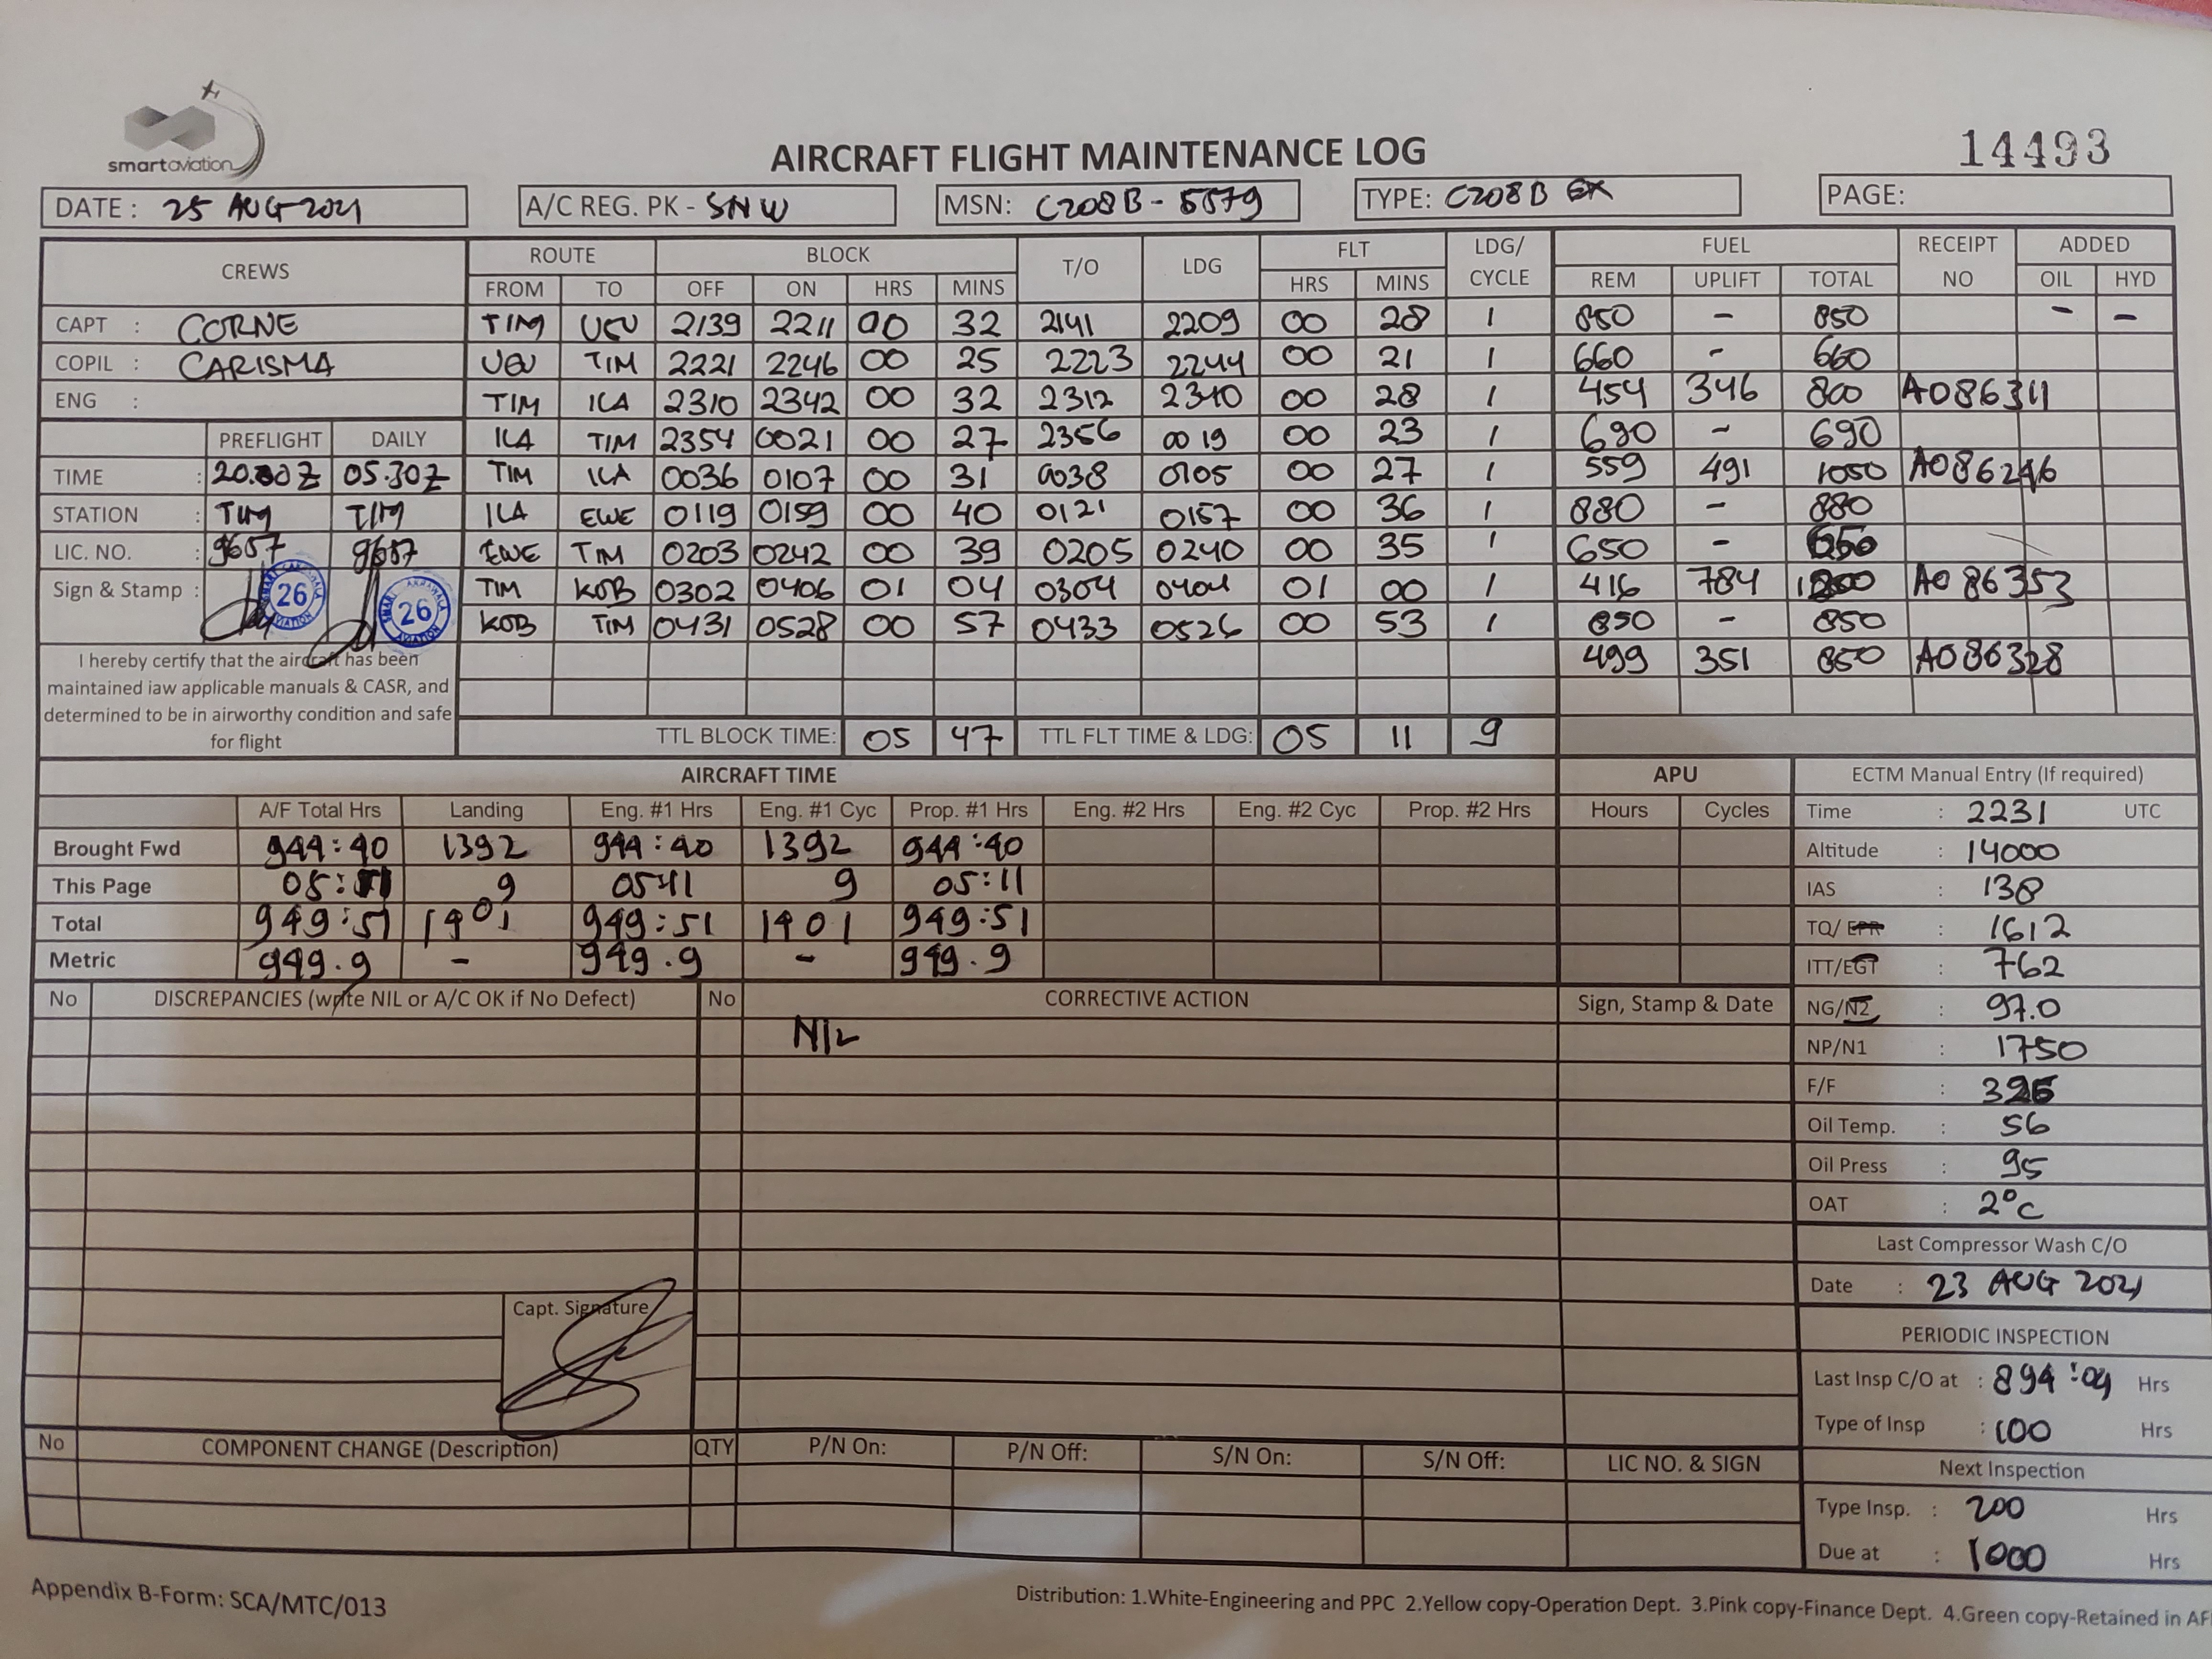 smartaviation
AIRCRAFT FLIGHT MAINTENANCE LOG
14493
DATE : 25 AUG 2021 A/C REG. PK - SNW MSN: C208B - 5579 TYPE: C208B EX PAGE:
CREWS ROUTE BLOCK T/O LDG FLT LDG/ CYCLE FUEL RECEIPT NO ADDED
FROM TO OFF ON HRS MINS HRS MINS REM UPLIFT TOTAL OIL HYD
CAPT : CORNE TIM UGU 2139 2211 00 32 2141 2209 00 28 1 850 - 850 - -
COPIL : CARISMA UGU TIM 2221 2246 00 25 2223 2244 00 21 1 660 - 660
ENG : TIM ILA 2310 2342 00 32 2312 2340 00 28 1 454 346 800 A086311
PREFLIGHT DAILY ILA TIM 2354 0021 00 27 2356 0019 00 23 1 690 - 690
TIME : 20.00Z 05.30Z TIM ILA 0036 0107 00 31 0038 0105 00 27 1 559 491 1050 A086246
STATION : TIM TIM ILA EWE 0119 0159 00 40 0121 0157 00 36 1 880 - 880
LIC. NO. : 9657 9657 EWE TIM 0203 0242 00 39 0205 0240 00 35 1 650 - 650
Sign & Stamp : 26 26 TIM KOB 0302 0406 01 04 0304 0404 01 00 1 416 784 1200 A086353
KOB TIM 0431 0528 00 57 0433 0526 00 53 1 850 - 850
499 351 850 A086328
I hereby certify that the aircraft has been
maintained iaw applicable manuals & CASR, and
determined to be in airworthy condition and safe
for flight
TTL BLOCK TIME: 05 47 TTL FLT TIME & LDG: 05 11 9
AIRCRAFT TIME APU
A/F Total Hrs Landing Eng. #1 Hrs Eng. #1 Cyc Prop. #1 Hrs Eng. #2 Hrs Eng. #2 Cyc Prop. #2 Hrs Hours Cycles
Brought Fwd 944:40 1392 944:40 1392 944:40
This Page 05:11 9 05:11 9 05:11
Total 949:51 1401 949:51 1401 949:51
Metric 949.9 - 949.9 - 949.9
ECTM Manual Entry (If required)
Time : 2231 UTC
Altitude : 14000
IAS : 138
TQ/ EPR : 1612
ITT/EGT : 762
NG/N2 : 97.0
NP/N1 : 1750
F/F :
Oil Temp. : 56
Oil Press : 95
OAT : 2°C
Last Compressor Wash C/O
Date : 23 AUG 2021
PERIODIC INSPECTION
Last Insp C/O at : 894:04 Hrs
Type of Insp : 100 Hrs
Next Inspection
Type Insp. : 200 Hrs
Due at : 1000 Hrs
No DISCREPANCIES (write NIL or A/C OK if No Defect) No CORRECTIVE ACTION Sign, Stamp & Date
NIL
Capt. Signature
No COMPONENT CHANGE (Description) QTY P/N On: P/N Off: S/N On: S/N Off: LIC NO. & SIGN
Appendix B-Form: SCA/MTC/013
Distribution: 1.White-Engineering and PPC 2.Yellow copy-Operation Dept. 3.Pink copy-Finance Dept. 4.Green copy-Retained in